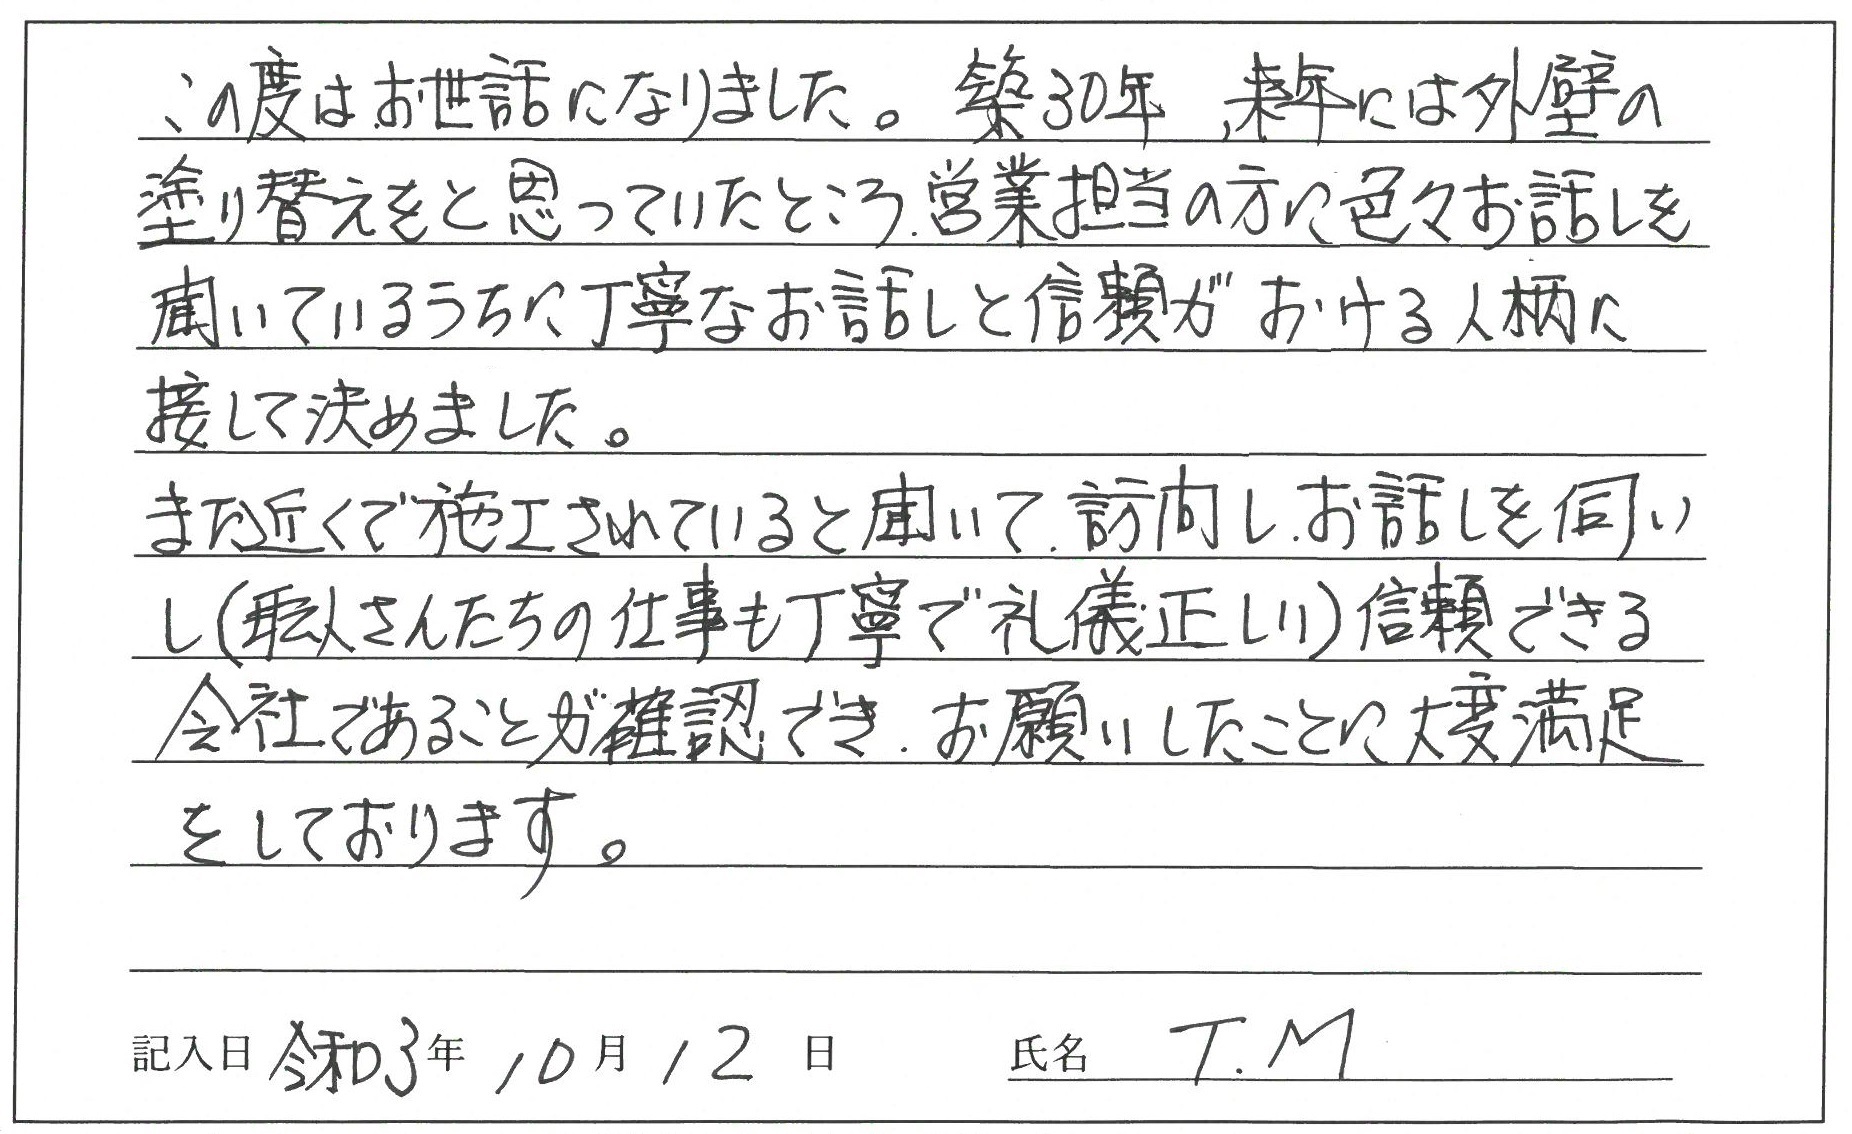 この度はお世話になりました。築30年 来年には外壁の
塗り替えをと思っていたところ、営業担当の方に色々お話しを
聞いているうちに丁寧なお話しと信頼がおける人柄に
接して決めました。
また近くで施工されていると聞いて、訪問し、お話しを伺い
し(職人さんたちの仕事も丁寧で礼儀正しい)信頼できる
会社であることが確認でき、お願いしたことに大変満足
をしております。
記入日 令和3年 10月 12日 氏名 T.M